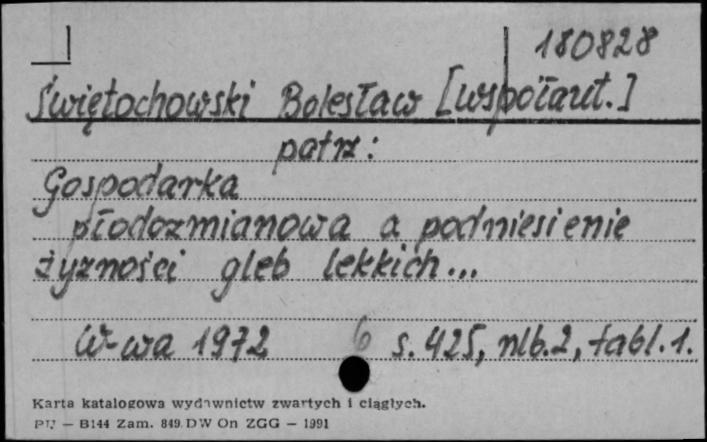 180828
Świętochowski Bolesław [współaut.]
patrz:
Gospodarka
płodozmianowa a podniesienie
żyzności gleb lekkich...
W-wa 1972 6 s. 425, nlb. 2, tabl. 1.
Karta katalogowa wydawnictw zwartych i ciągłych.
PU — B144 Zam. 849 DW On ZGG — 1991